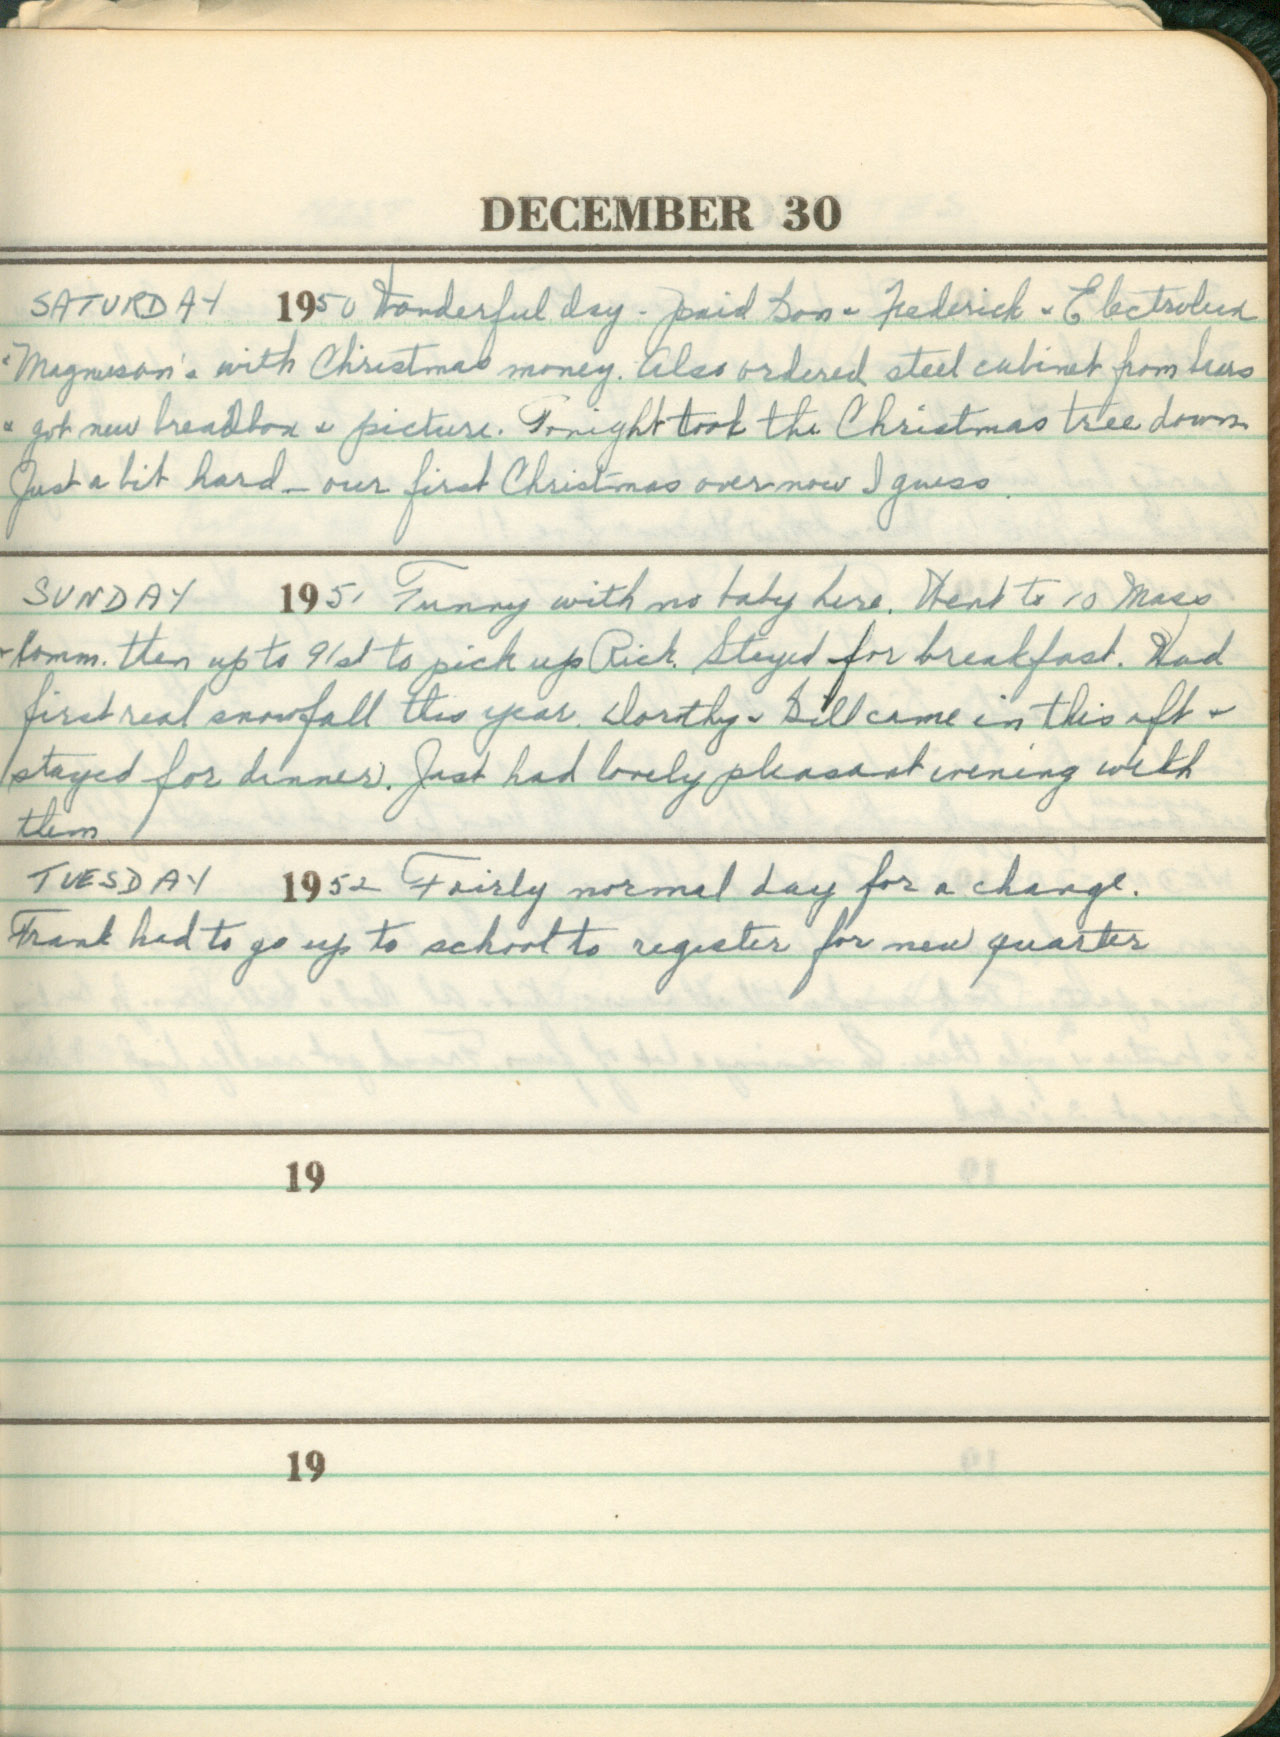 DECEMBER 30
SATURDAY 1950 Wonderful day - paid Bon & Frederick & Electrolux
& Magnuson's with Christmas money. Also ordered steel cabinet from Sears
& got new breadbox & picture. Tonight took the Christmas tree down.
Just a bit hard - our first Christmas over now I guess.
SUNDAY 1951 Funny with no baby here. Went to 10 Mass
& Comm. then up to 91st to pick up Rick. Stayed for breakfast. Had
first real snowfall this year. Dorthy & Bill came in this aft &
stayed for dinner. Just had lovely pleasant evening with
them
TUESDAY 1952 Fairly normal day for a change.
Frank had to go up to school to register for new quarter
19
19